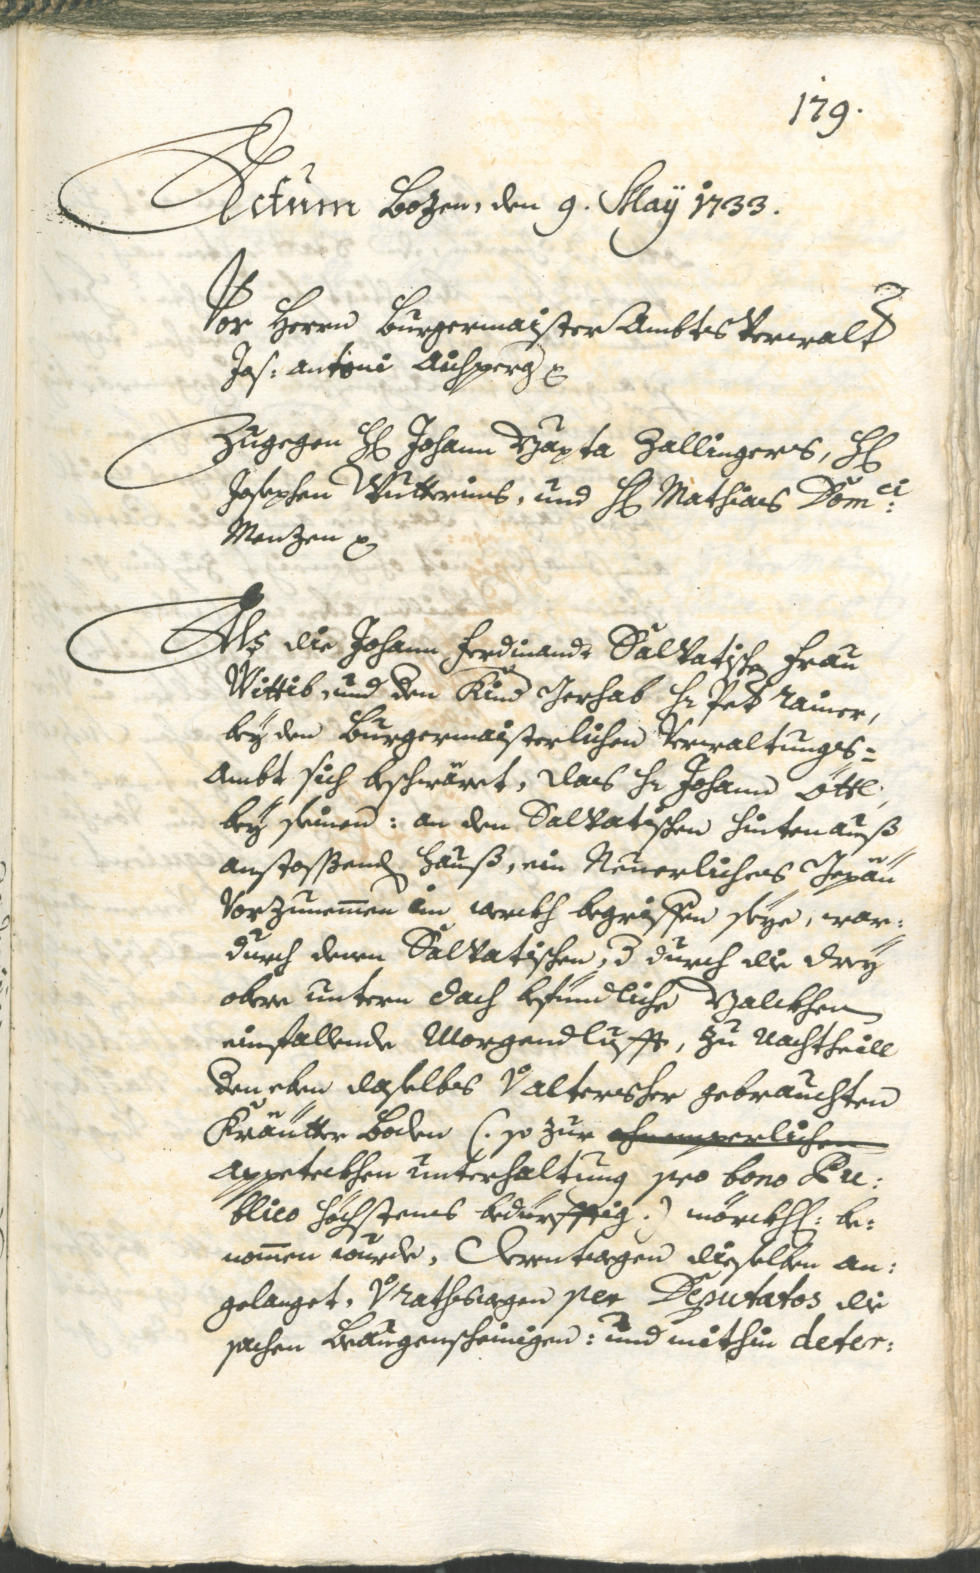 179.
Actum Bozen, den 9. Maÿ 1733.
Vor Herrn Burgermaister Ambts Verwalt
Jos: Antoni Aichperg
Zugegen H: Johann Bapta Zallingers, H:
Josephen Wutterins, und H: Mathias Dom:ci
Menzen
Als die Johann Ferdinandt Salvatische Frau
Wittib, und den Kind Gerhab Hr Pet: Rainer,
beÿ den Burgermaisterlichen Verwaltungs=
Ambt sich beschwäret, das Hr Johann Öttl,
beÿ seinen: an den Salvatischen hintenauß
anstossend Hauß, ein Neuerliches Gepäu
Vorzunemmen im werckh begriffen seÿe, war:
durch denen Salvatischen, durch die dreÿ
obere untern dach befündliche Balckhen
einfallende Morgendlufft, zu Nachtheill
den eben daselbs V: altershero gebrauchten
Kräutter Boden (: so zur
Appeteckhen unterhaltung pro bono Pu:
blico höchstens bedürfftig :) mörckhl: be:
nommen wurde, derentwegen dieselben an:
gelanget, V: Rathswegen per Deputatos die
sachen Beaugenscheinigen: und mithin deter: